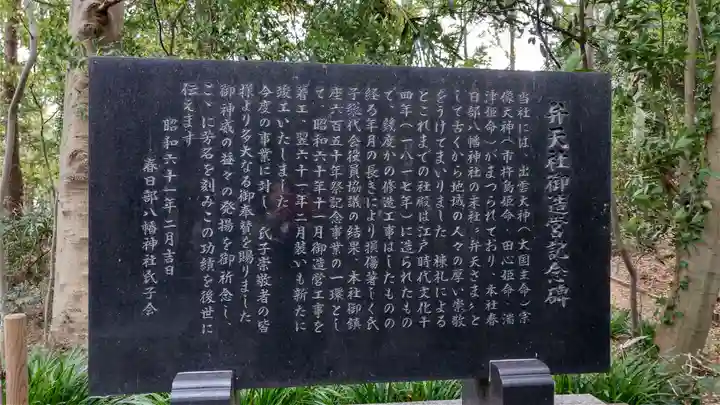 弁天社御造営記念碑
当社には、出雲大神(大国主命)宗
像天神(市杵島姫命・田心姫命・湍
津姫命)がまつられており、本社春
日部八幡神社の末社〝弁天さま〟と
して古くから地域の人々の厚い崇敬
をうけてまいりました 棟札による
とこれまでの社殿は江戸時代文化十
四年(一八一七年)に造られたもの
で、幾度かの修造工事はしたものの
経る年月の長きにより損傷著しく氏
子総代会役員協議の結果、本社御鎮
座六百五十年祭記念事業の一環とし
て、昭和六十年十一月御造営工事を
着工、翌六十一年二月装いも新たに
竣工いたしました
今度の事業に対し、氏子崇敬者の皆
様より多大なる御奉賛を賜りました
御神威の益々の発揚を御祈念し、
こゝに芳名を刻みこの功績を後世に
伝えます
昭和六十一年二月吉日
春日部八幡神社氏子会